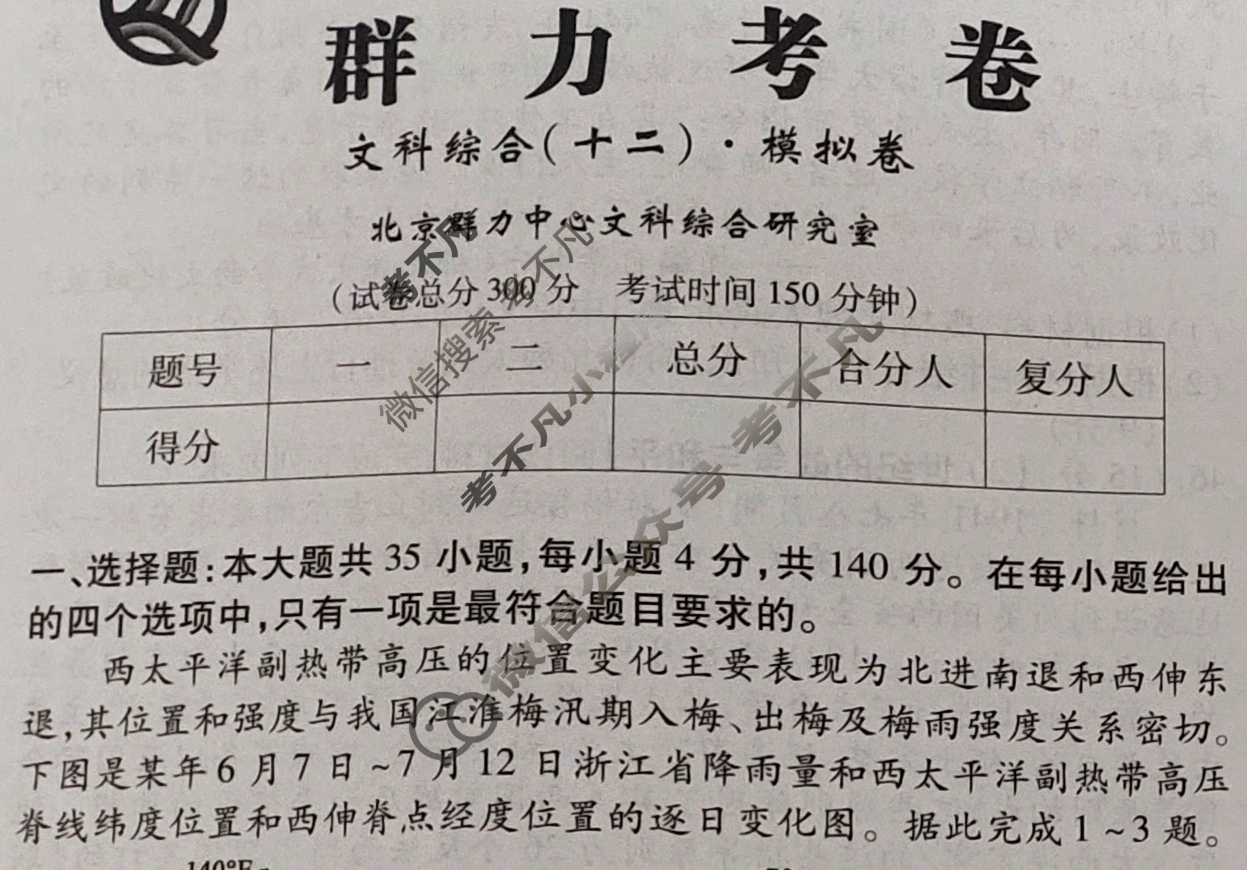 群力考卷
文科综合(十二)·模拟卷
北京群力中心文科综合研究室
(试卷总分 300 分 考试时间 150 分钟)
题号 一 二 总分 合分人 复分人
得分
一、选择题:本大题共 35 小题,每小题 4 分,共 140 分。在每小题给出
的四个选项中,只有一项是最符合题目要求的。
西太平洋副热带高压的位置变化主要表现为北进南退和西伸东
退,其位置和强度与我国江淮梅汛期入梅、出梅及梅雨强度关系密切。
下图是某年 6 月 7 日~7 月 12 日浙江省降雨量和西太平洋副热带高压
脊线纬度位置和西伸脊点经度位置的逐日变化图。据此完成 1~3 题。
考不凡
微信搜索 考不凡
考不凡小
微信公众号 考不凡